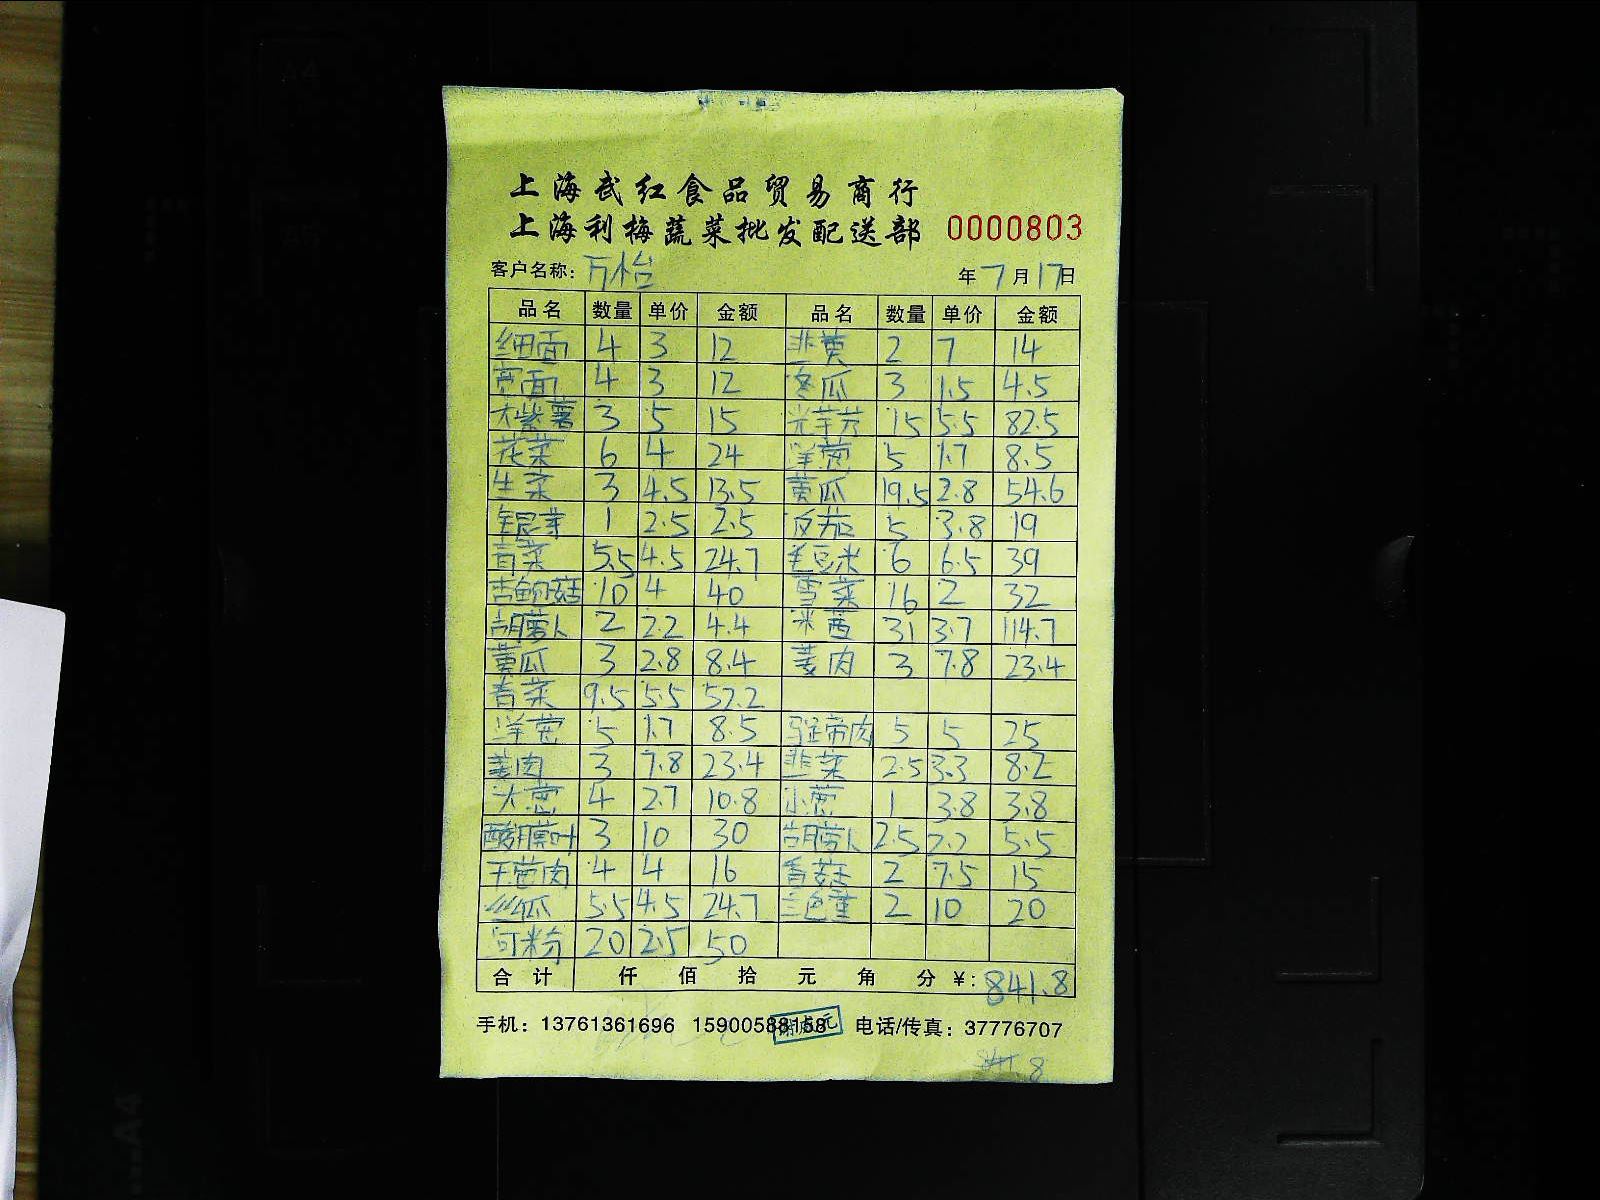 上海武红食品贸易商行
上海利梅蔬菜批发配送部 0000803
客户名称：万怡 年7月17日
品名 数量 单价 金额 品名 数量 单价 金额
细面 4 3 12 韭黄 2 7 14
宽面 4 3 12 冬瓜 3 1.5 4.5
大紫薯 3 5 15 光芋艿 15 5.5 82.5
花菜 6 4 24 洋葱 5 1.7 8.5
生菜 3 4.5 13.5 黄瓜 19.5 2.8 54.6
银芽 1 2.5 2.5 反茄 5 3.8 19
青菜 5.5 4.5 24.7 毛豆米 6 6.5 39
杏鲍菇 10 4 40 雪菜 16 2 32
胡萝卜 2 2.2 4.4 米茜 31 3.7 114.7
黄瓜 3 2.8 8.4 姜肉 3 7.8 23.4
青菜 9.5 5.5 52.2
洋葱 5 1.7 8.5 5 5 25
姜肉 3 7.8 23.4 韭菜 2.5 3.3 8.2
大葱 4 2.7 10.8 小葱 1 3.8 3.8
3 10 30 胡萝卜 2.5 2.2 5.5
干葱肉 4 4 16 香菇 2 7.5 15
丝瓜 5.5 4.5 24.7 三色堇 2 10 20
河粉 20 2.5 50
合计 仟 佰 拾 元 角 分 ¥：841.8
手机：13761361696 15900588158 电话/传真：37776707
8